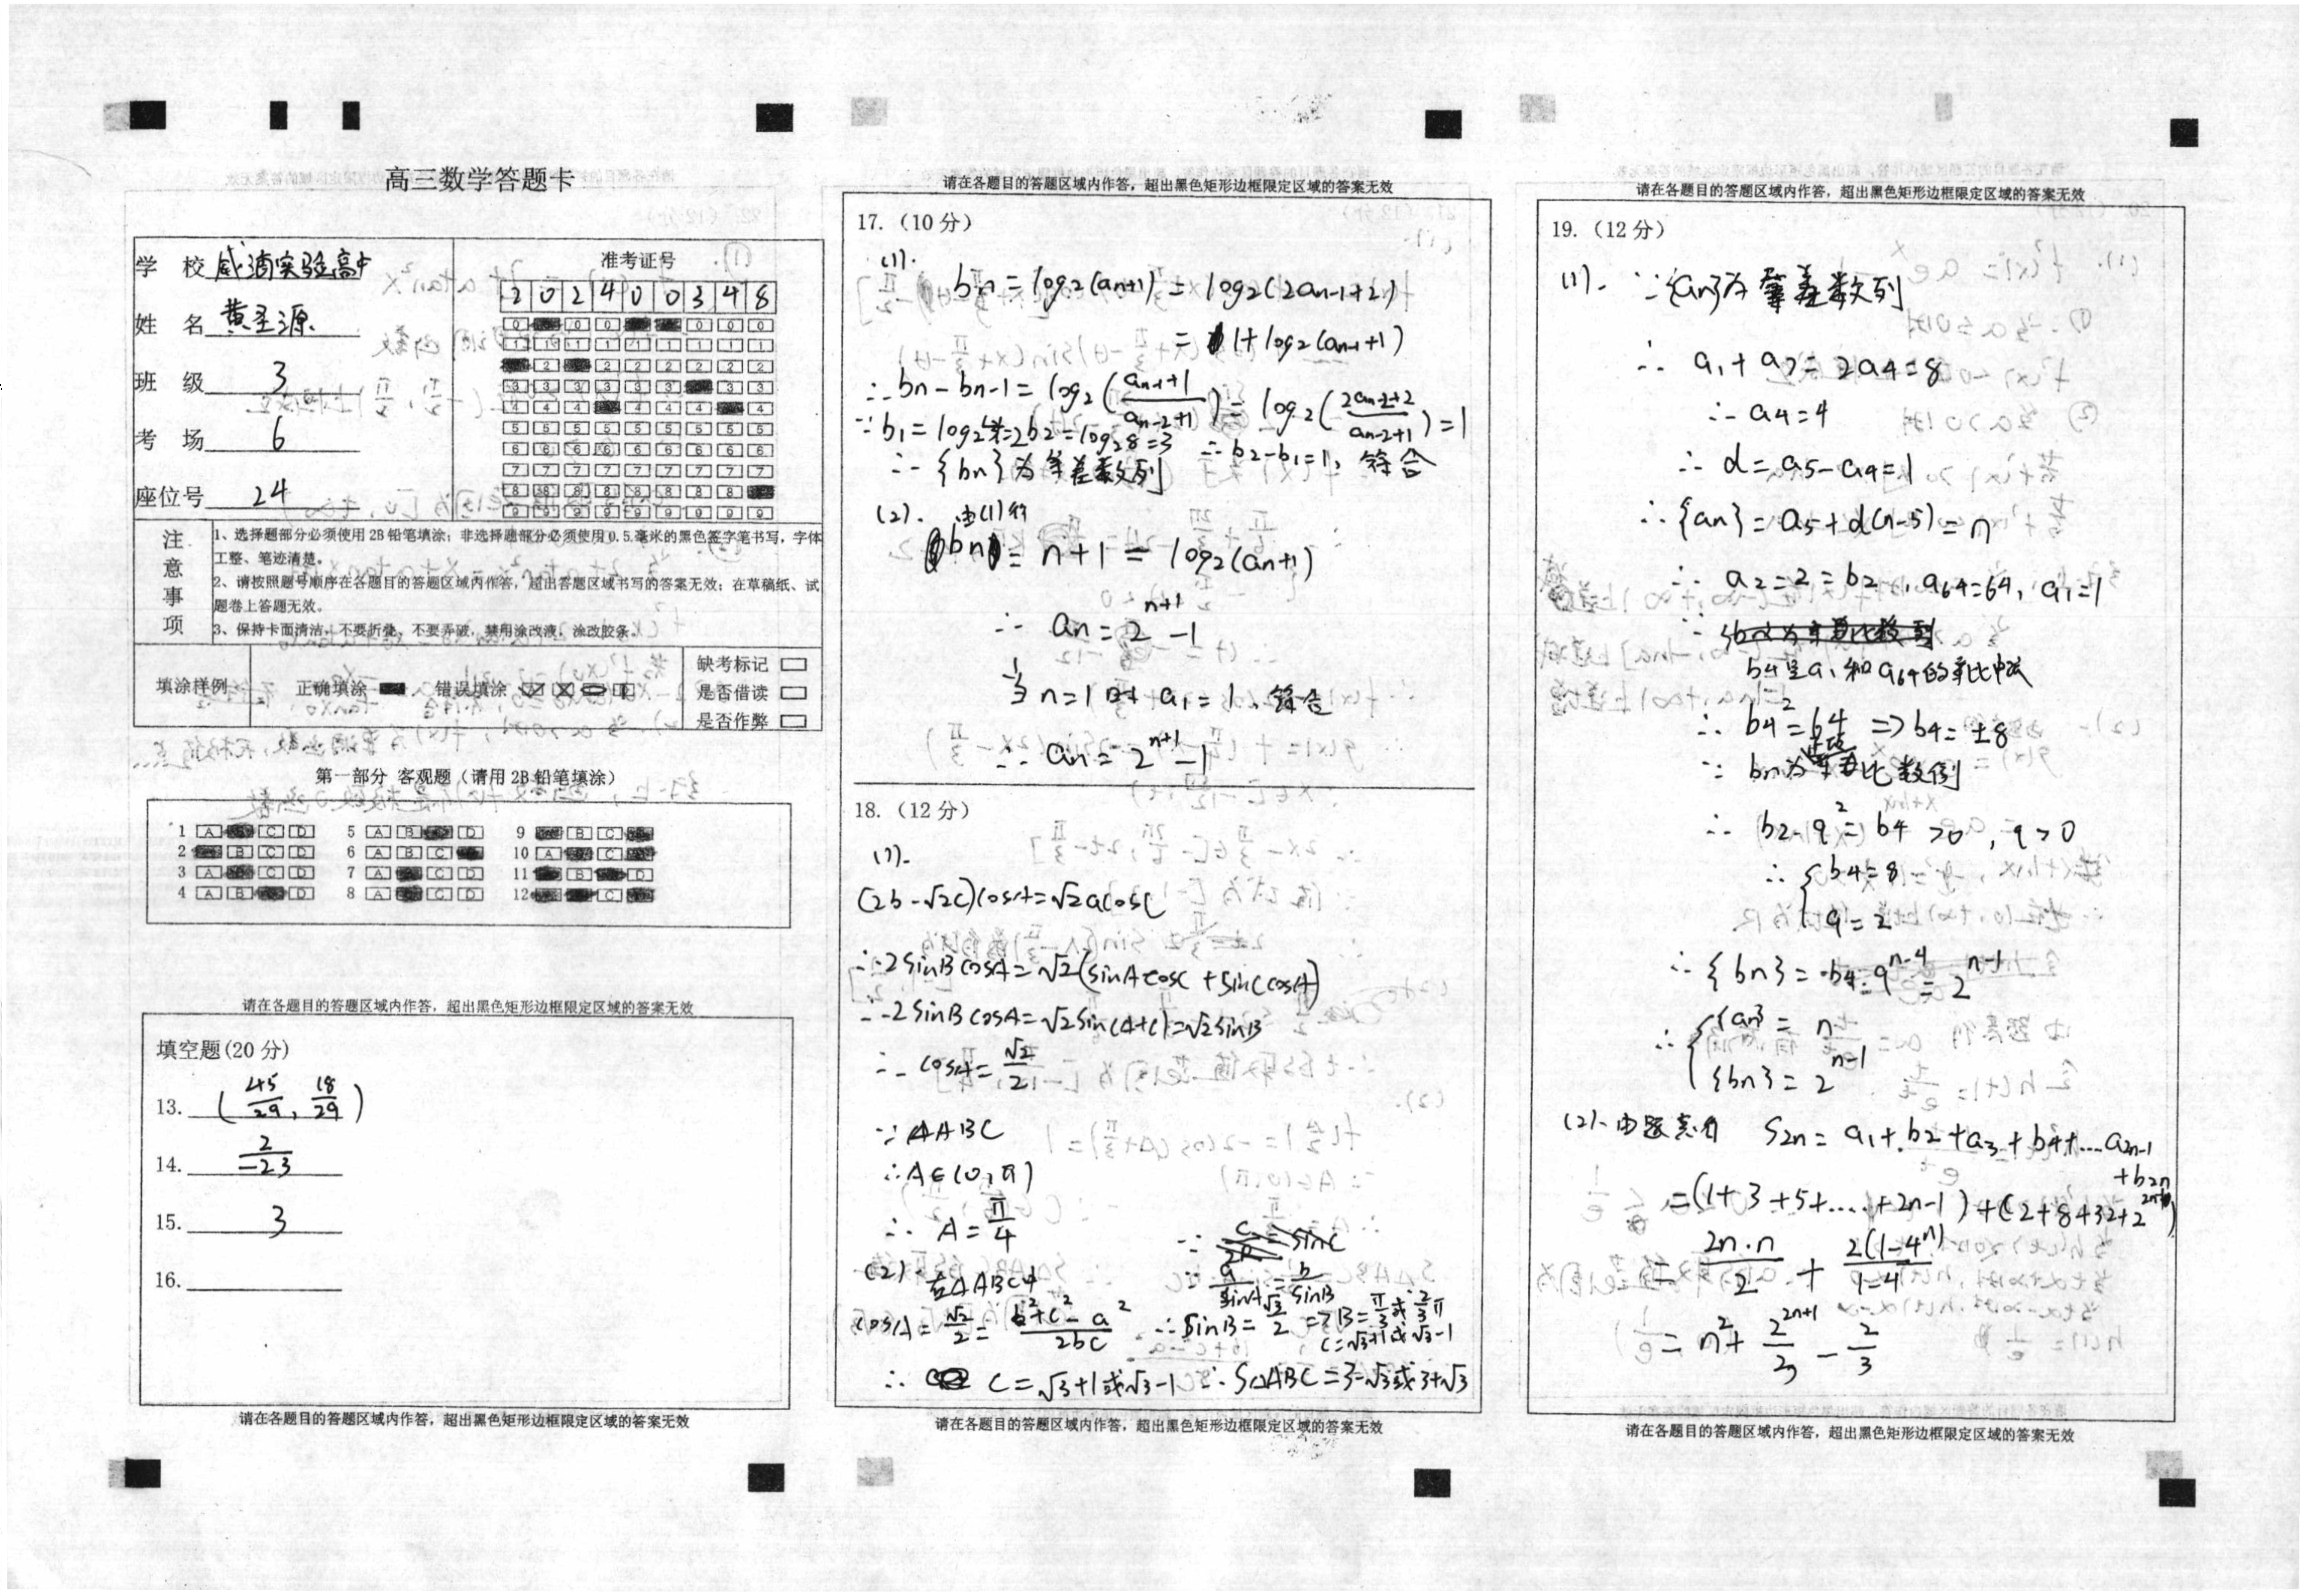 高三数学答题卡
学 校 威清实验高中
姓 名 黄圣源
班 级 3
考 场 6
座位号 24
准考证号
2 0 2 4 0 0 3 4 8
注意事项
1、选择题部分必须使用2B铅笔填涂；非选择题部分必须使用0.5毫米的黑色签字笔书写，字体
工整、笔迹清楚。
2、请按照题号顺序在各题目的答题区域内作答，超出答题区域书写的答案无效；在草稿纸、试
题卷上答题无效。
3、保持卡面清洁，不要折叠、不要弄破，禁用涂改液，涂改胶条。
填涂样例 正确填涂 错误填涂
缺考标记
是否借读
是否作弊
第一部分 客观题（请用2B铅笔填涂）
1 A C D 5 A B D 9 B C
2 B C D 6 A B C 10 A C
3 A C D 7 A C D 11 B D
4 A B D 8 A C D 12 C
请在各题目的答题区域内作答，超出黑色矩形边框限定区域的答案无效
填空题(20 分)
13. (45/29, 18/29)
14. 2/-23
15. 3
16.
请在各题目的答题区域内作答，超出黑色矩形边框限定区域的答案无效
请在各题目的答题区域内作答，超出黑色矩形边框限定区域的答案无效
17.（10 分）
(1).
bn = log2(an+1) = log2(2an-1+2)
= 1+log2(an-1+1)
∴ bn - bn-1 = log2((an-1+1)/(an-2+1)) = log2((2an-2+2)/(an-2+1)) = 1
∵ b1 = log24=2 b2=log28=3 ∴ b2-b1=1, 符合
∴ {bn}为等差数列
(2). 由(1)得
bn = n+1 = log2(an+1)
∴ an = 2^(n+1) - 1
当n=1时 a1 = 1, 符合
∴ an = 2^(n+1) - 1
18.（12 分）
(1).
(2b-√2c)cosA=√2acosC
∴ 2sinBcosA=√2(sinAcosC+sinCcosA)
∴ 2sinBcosA=√2sin(A+C)=√2sinB
∴ cosA=√2/2
∵ △ABC
∴ A∈(0,π)
∴ A=π/4
(2). 在△ABC中
cosA=√2/2=(b²+c²-a²)/2bc
∵ a/sinA=b/sinB
∴ sinB=√3/2 => B=π/3或2/3π
c=√3+1或√3-1
∴ c=√3+1或√3-1 ∴ S△ABC=3-√3或3+√3
请在各题目的答题区域内作答，超出黑色矩形边框限定区域的答案无效
请在各题目的答题区域内作答，超出黑色矩形边框限定区域的答案无效
19.（12 分）
(1). ∵{an}为等差数列
∴ a1+a7=2a4=8
∴ a4=4
∴ d=a5-a4=1
∴ {an}=a5+d(n-5)=n
∴ a2=2=b2, a64=64, a1=1
b4是a1和a64的等比中项
∴ b4²=64 => b4=±8
∵ bn为等比数例
∴ b2·q²=b4>0, q>0
∴ {b4=8
q=2
∴ {bn}=b4·q^(n-4)=2^(n-1)
∴ {{an}=n
{bn}=2^(n-1)
(2). 由题意有 S2n=a1+b2+a3+b4+...a2n-1
+b2n
=(1+3+5+....+2n-1)+(2+8+32+2^(2n-1))
=2n·n/2+2(1-4^n)/(1-4)
=n²+2^(2n+1)/3-2/3
请在各题目的答题区域内作答，超出黑色矩形边框限定区域的答案无效